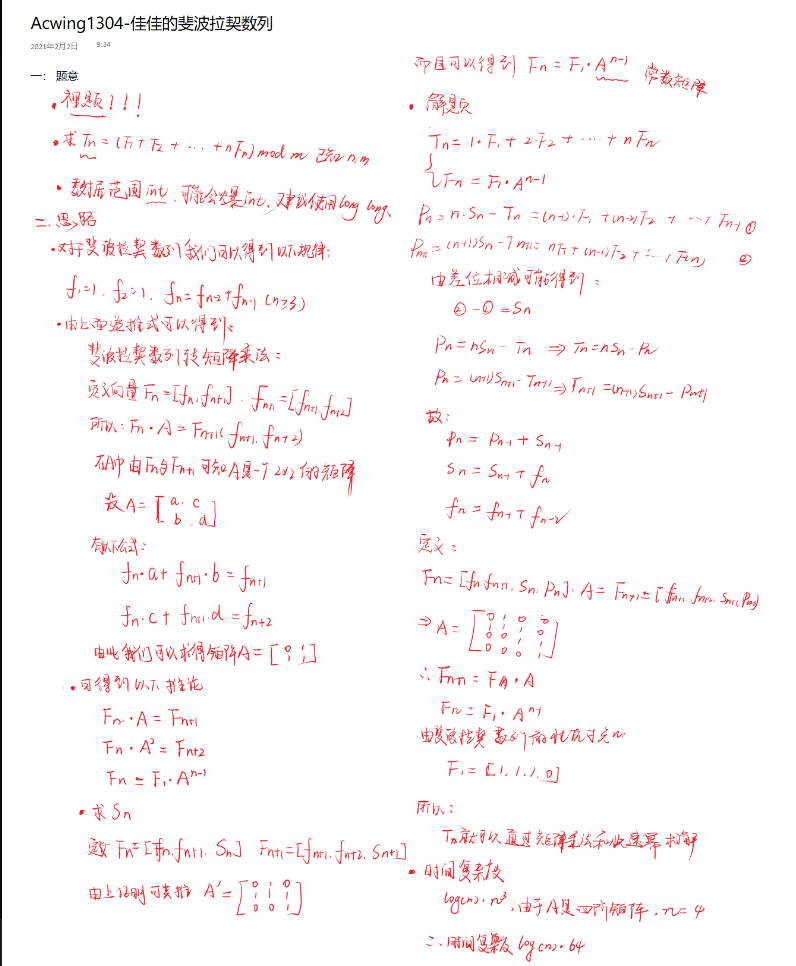 Acwing1304-佳佳的斐波拉契数列
2021年2月2日 9:34
一： 题意
• 裸题！！！
• 求 Tn = (F1 + F2 + ... + nFn) mod m 已知 n, m
• 数据范围 int, 可能会爆 int, 建议使用 long long、
二、思路
• 对于斐波拉契数列我们可以得到以下规律:
f1=1, f2=1, fn=fn-2+fn-1 (n≥3)
• 由上面递推式可以得到:
斐波拉契数列转矩阵乘法:
定义向量 Fn=[fn, fn+1]. Fn+1=[fn+1, fn+2]
所以: Fn·A = Fn+1(fn+1, fn+2)
由Fn与Fn+1可知A是一个2x2的矩阵
设 A = [a. c
b . d]
有以下公式:
fn·a + fn+1·b = fn+1
fn·c + fn+1·d = fn+2
由此我们可以求得矩阵A = [0 1
1 1]
• 可得到以下推论
Fn·A = Fn+1
Fn·A² = Fn+2
Fn = F1·Aⁿ⁻¹
• 求 Sn
定义 Fn=[fn, fn+1, Sn] Fn+1=[fn+1, fn+2, Sn+1]
由上证明可类推 A' = [0 1 0
1 1 1
0 0 1]
而且可以得到 Fn = F1·Aⁿ⁻¹ 常数矩阵
• 解题
Tn = 1·F1 + 2·F2 + ... + nFn
Fn = F1·Aⁿ⁻¹
Pn = n·Sn - Tn = (n-1)·F1 + (n-2)F2 + ...1 Fn-1 ①
Pn+1 = (n+1)Sn - Tn+1 = nF1 + (n-1)F2 + ...1 F(n) ②
由差位相减可能得到:
② - ① = Sn
Pn = nSn - Tn ⇒ Tn = nSn - Pn
Pn = (n+1)Sn+1 - Tn+1 ⇒ Tn+1 = (n+1)Sn+1 - Pn+1
故:
Pn = Pn-1 + Sn-1
Sn = Sn-1 + fn
fn = fn-1 + fn-2
定义:
Fn = [fn, fn+1, Sn, Pn]·A = Fn+1 = [fn+1, fn+2, Sn+1, Pn+1]
⇒ A = [0 1 0 0
1 1 1 0
0 0 1 1
0 0 0 1]
∴ Fn+1 = Fn·A
Fn = F1·Aⁿ⁻¹
由斐波拉契数列的性质可知
F1 = [1, 1, 1, 0]
所以:
Tn就可以通过矩阵乘法和快速幂求解
• 时间复杂度
log(n)·n³, 由于A是四阶矩阵, n=4
∴时间复杂度 log(n)·64